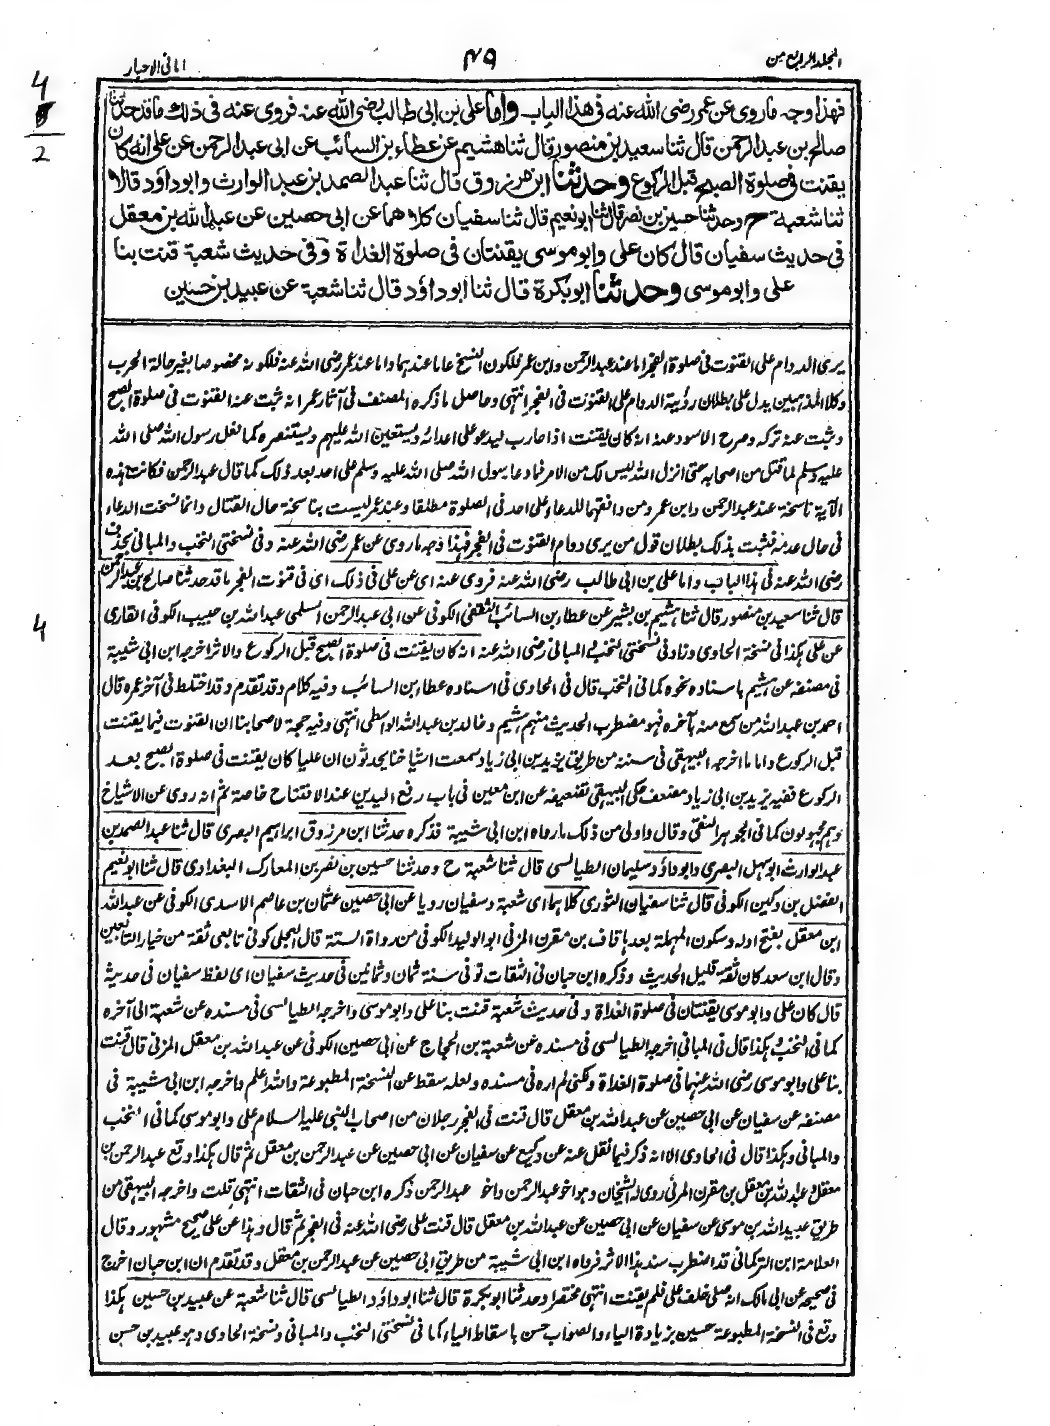 المجلد الرابع من
٤٩
امانی الاحبار
4
2
فهذا وجه ماروی عن عمر رضی الله عنه فی هذا الباب واما علی بن ابی طالب رضی الله عنه فروی عنه فی ذلك ما قد حدثنا
صالح بن عبد الرحمن قال ثنا سعید بن منصور قال ثنا هشیم عن عطاء بن السائب عن ابی عبد الرحمن عن علی انه کان
یقنت فی صلوة الصبح قبل الرکوع وحدثنا ابن مرزوق قال ثنا عبد الصمد بن عبد الوارث وابوداؤد قالا
ثنا شعبة ح وحدثنا حسین بن نصر قال ثنا ابونعیم قال ثنا سفیان کلاهما عن ابی حصین عن عبد الله بن معقل
فی حدیث سفیان قال کان علی وابوموسی یقنتان فی صلوة الغداة وفی حدیث شعبة قنت بنا
علی وابوموسی وحدثنا ابوبکرة قال ثنا ابوداؤد قال ثنا شعبة عن عبید بن حسین
یری الدوام علی القنوت فی صلوة الفجر اما عند عبدالرحمن وابن عمر فلکون النسخ عاما عندهما واما عند عمر رضی الله عنه فلکونه مخصوصا بغیر حالة الحرب
وکلا المذهبین یدل علی بطلان رؤیة الدوام علی القنوت فی الفجر انتهی وحاصل ما ذکره المصنف فی آثار عمر انه ثبت عنه القنوت فی صلوة الصبح
وثبت عنه ترکه وصرح الاسود عنه انه کان یقنت اذا حارب لیدعو علی اعدائه ویستعین الله علیهم ویستنصره کما فعل رسول الله صلی الله
علیه وسلم لما قتل من اصحابه حتی انزل الله لیس لک من الامر فما دعا رسول الله صلی الله علیه وسلم علی احد بعد ذلک کما قال عبدالرحمن فکانت هذه
الآیة ناسخة عند عبدالرحمن وابن عمر ومن وافقهما للدعاء علی احد فی الصلوة مطلقا وعند عمر لیست بناسخة حال القتال وانما نسخت الدعاء
فی حال عدمه فثبت بذلک بطلان قول من یری دوام القنوت فی الفجر فهذا وجه ماروی عن عمر رضی الله عنه وفی نسختی النخب والمبانی بحذف
رضی الله عنه فی هذا الباب واما علی بن ابی طالب رضی الله عنه فروی عنه ای عن علی فی ذلک ای فی قنوت الفجر ما قد حدثنا صالح بن عبدالرحمن
قال ثنا سعید بن منصور قال ثنا هشیم بن بشیر عن عطا بن السائب الثقفی الکوفی عن ابی عبدالرحمن السلمی عبدالله بن حبیب الکوفی القاری
عن علی هکذا فی نسخة الحاوی وزاد فی نسختی النخب والمبانی رضی الله عنه انه کان یقنت فی صلوة الصبح قبل الرکوع والاثر اخرجه ابن ابی شیبة
فی مصنفه عن هشیم باسناده نحوه کما فی النخب قال فی الحاوی فی اسناده عطا ابن السائب وفیه کلام وقد تقدم وقد اختلط فی آخر عمره قال
احمد بن عبدالله من سمع منه بآخره فهو مضطرب الحدیث منهم هشیم وخالد بن عبدالله الواسطی انتهی وفیه حجة لاصحابنا ان القنوت فیما یقنت
قبل الرکوع واما ما اخرجه البیهقی فی سننه من طریق یزید بن ابی زیاد سمعت اشیاخنا یحدثون ان علیا کان یقنت فی صلوة الصبح بعد
الرکوع ففیه یزید بن ابی زیاد مضعف حکی البیهقی تضعیفه عن ابن معین فی باب رفع الیدین عند الافتتاح خاصة ثم انه روی عن الاشیاخ
وهم مجهولون کما فی الجوهر النقی وقال واولی من ذلک ما رواه ابن ابی شیبة فذکره حدثنا ابن مرزوق ابراهیم البصری قال ثنا عبدالصمد بن
عبدالوارث ابوسهل البصری وابوداؤد سلیمان الطیالسی قال ثنا شعبة ح وحدثنا حسین بن نصر بن المعارک البغدادی قال ثنا ابونعیم
الفضل بن دکین الکوفی قال ثنا سفیان الثوری کلاهما ای شعبة وسفیان رویا عن ابی حصین عثمان بن عاصم الاسدی الکوفی عن عبدالله
ابن معقل بفتح اوله وسکون المهملة بعدها قاف بن مقرن المزنی ابوالولید الکوفی من رواة الستة قال العجلی کوفی تابعی ثقة من خیار التابعین
وقال ابن سعد کان ثقة قلیل الحدیث وذکره ابن حبان فی الثقات توفی سنة ثمان وثمانین فی حدیث سفیان ای لفظ سفیان فی حدیثه
قال کان علی وابوموسی یقنتان فی صلوة الغداة وفی حدیث شعبة قنت بنا علی وابوموسی واخرجه الطیالسی فی مسنده عن شعبة الی آخره
کما فی النخب وهکذا قال فی المبانی اخرجه الطیالسی فی مسنده عن شعبة بن الحجاج عن ابی حصین الکوفی عن عبدالله بن معقل المزنی قال قنت
بنا علی وابوموسی رضی الله عنهما فی صلوة الغداة ولکنی لم اره فی مسنده ولعله سقط عن النسخة المطبوعة والله اعلم واخرجه ابن ابی شیبة فی
مصنفه عن سفیان عن ابی حصین عن عبدالله بن معقل قال قنت فی الفجر رجلان من اصحاب النبی علیه السلام علی وابوموسی کما فی النخب
والمبانی وهکذا قال فی الحاوی الا انه ذکر فیما نقل عنه عن وکیع عن سفیان عن ابی حصین عن عبدالرحمن بن معقل ثم قال هکذا وقع عبدالرحمن بن
معقل وعبدالله بن معقل بن مقرن المزنی روی له الشیخان وهو اخو عبدالرحمن واخو عبدالرحمن ذکره ابن حبان فی الثقات انتهی قلت واخرجه البیهقی من
طریق عبیدالله بن موسی عن سفیان عن ابی حصین عن عبدالله بن معقل قال قنت علی رضی الله عنه فی الفجر ثم قال وهذا عن علی صحیح مشهور وقال
العلامة ابن الترکمانی قد اضطرب سند هذا الاثر فرواه ابن ابی شیبة من طریق ابی حصین عن عبدالرحمن بن معقل وقد تقدم ان ابن حبان اخرج
فی صحیحه عن ابی مالک انه صلی خلف علی فلم یقنت انتهی مختصرا وحدثنا ابوبکرة قال ثنا ابوداؤد الطیالسی قال ثنا شعبة عن عبید بن حسین هکذا
وقع فی النسخة المطبوعة حسین بزیادة الیاء والصواب حسن باسقاط الیاء کما فی نسختی النخب والمبانی ونسخة الحاوی وهو عبید بن حسن
4